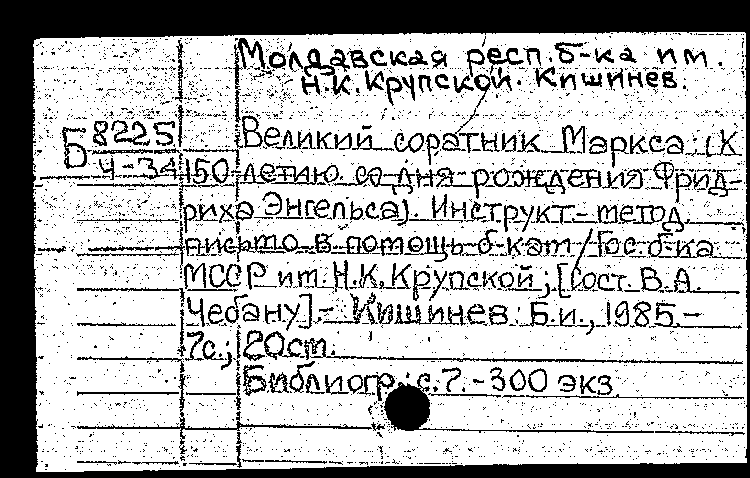 Молдавская респ.б-ка им.
Н.К.Крупской. Кишинев.
Б 8225
Ч-34
Великий соратник Маркса: (К
150-летию со дня рождения Фрид-
риха Энгельса). Инструкт.-метод.
письмо в помощь б-кам/Гос.б-ка
МССР им. Н.К.Крупской; [Сост. В.А.
Чебану].- Кишинев: Б.и., 1985.-
7с.; 20см.
Библиогр.: с.7.-300 экз.